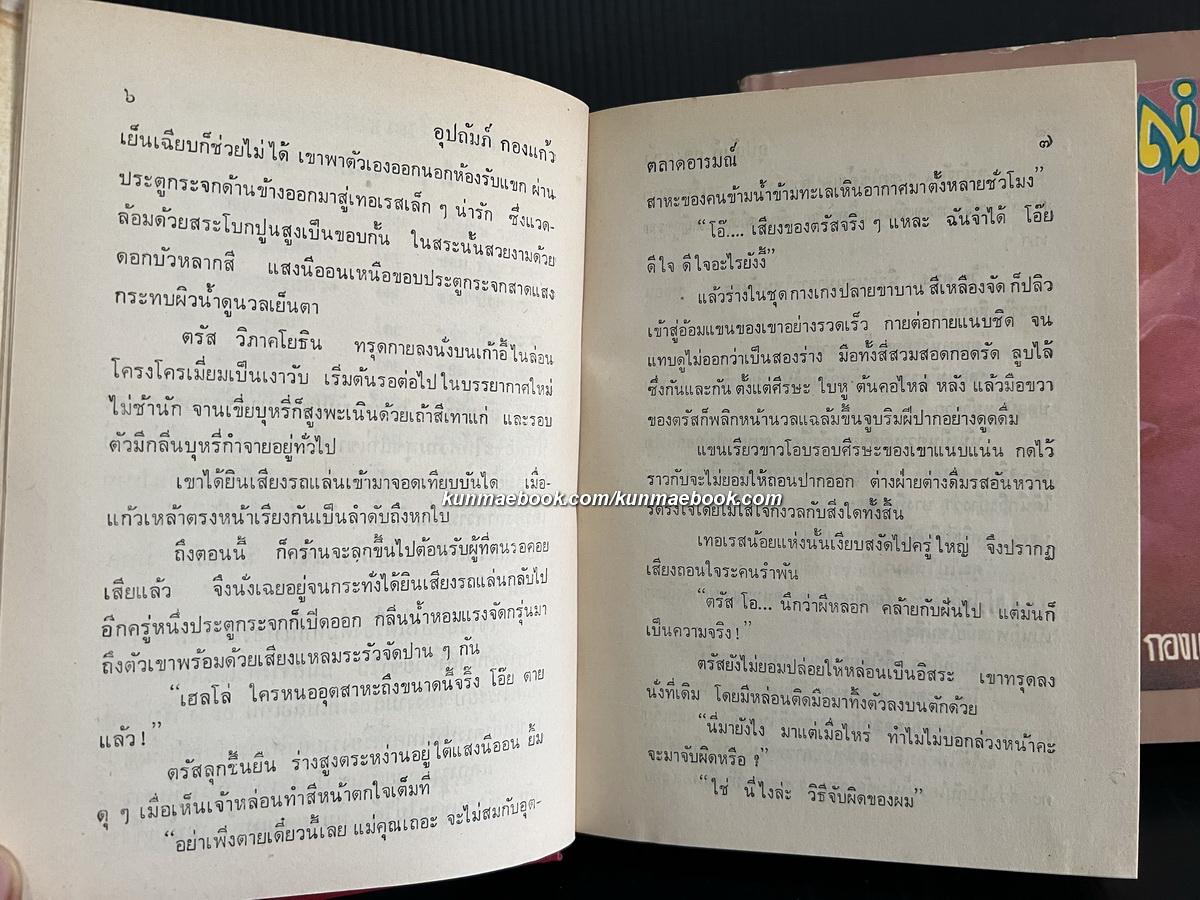 ๖
อุปถัมภ์ กองแก้ว
เย็นเฉียบก็ช่วยไม่ได้ เขาพาตัวเองออกนอกห้องรับแขก ผ่าน
ประตูกระจกด้านข้างออกมาสู่เทอเรสเล็ก ๆ น่ารัก ซึ่งแวด-
ล้อมด้วยสระโบกปูนสูงเป็นขอบกั้น ในสระนั้นสวยงามด้วย
ดอกบัวหลากสี แสงนีออนเหนือขอบประตูกระจกสาดแสง
กระทบผิวน้ำดูนวลเย็นตา
ตรัส วิภาคโยธิน ทรุดกายลงนั่งบนเก้าอี้ไนล่อน
โครงโครเมี่ยมเป็นเงาวับ เริ่มต้นรอต่อไปในบรรยากาศใหม่
ไม่ช้านัก จานเขี่ยบุหรี่ก็สูงพะเนินด้วยเถ้าสีเทาแก่ และรอบ
ตัวมีกลิ่นบุหรี่กำจายอยู่ทั่วไป
เขาได้ยินเสียงรถแล่นเข้ามาจอดเทียบบันได เมื่อ-
แก้วเหล้าตรงหน้าเรียงกันเป็นลำดับถึงหกใบ
ถึงตอนนี้ ก็คร้านจะลุกขึ้นไปต้อนรับผู้ที่ตนรอคอย
เสียแล้ว จึงนั่งเฉยอยู่จนกระทั่งได้ยินเสียงรถแล่นกลับไป
อีกครู่หนึ่งประตูกระจกก็เปิดออก กลิ่นน้ำหอมแรงจัดกรุ่นมา
ถึงตัวเขาพร้อมด้วยเสียงแหลมระรัวจัดปาน ๆ กัน
“เฮลโล่ ใครหนออุตสาหะถึงขนาดนี้จริ๊ง โอ๊ย ตาย
แล้ว!”
ตรัสลุกขึ้นยืน ร่างสูงตระหง่านอยู่ใต้แสงนีออน ยิ้ม
ดุ ๆ เมื่อเห็นเจ้าหล่อนทำสีหน้าตกใจเต็มที่
“อย่าเพิ่งตายเดี๋ยวนี้เลย แม่คุณเถอะ จะไม่สมกับอุต-
ตลาดอารมณ์
๗
สาหะของคนข้ามน้ำข้ามทะเลเหินอากาศมาตั้งหลายชั่วโมง”
“โอ๊.... เสียงของตรัสจริง ๆ แหละ ฉันจำได้ โอ๊ย
ดีใจ ดีใจอะไรยังงี้”
แล้วร่างในชุดกางเกงปลายขาบาน สีเหลืองจัด ก็ปลิว
เข้าสู่อ้อมแขนของเขาอย่างรวดเร็ว กายต่อกายแนบชิด จน
แทบดูไม่ออกว่าเป็นสองร่าง มือทั้งสี่สวมสอดกอดรัด ลูบไล้
ซึ่งกันและกัน ตั้งแต่ศีรษะ ใบหู ต้นคอไหล่ หลัง แล้วมือขวา
ของตรัสก็พลิกหน้านวลแฉล้มขึ้นจูบริมฝีปากอย่างดูดดื่ม
แขนเรียวขาวโอบรอบศีรษะของเขาแนบแน่น กดไว้
ราวกับจะไม่ยอมให้ถอนปากออก ต่างฝ่ายต่างดื่มรสอันหวาน
kunmaebook.com/kunmaebook.com
รัดรึงใจโดยไม่ใส่ใจกังวลกับสิ่งใดทั้งสิ้น
เทอเรสน้อยแห่งนั้นเงียบสงัดไปครู่ใหญ่ จึงปรากฏ
เสียงถอนใจระคนรำพัน
“ตรัส โอ... นึกว่าผีหลอก คล้ายกับฝันไป แต่มันก็
เป็นความจริง!”
ตรัสยังไม่ยอมปล่อยให้หล่อนเป็นอิสระ เขาทรุดลง
นั่งที่เดิม โดยมีหล่อนติดมือมาทิ้งตัวลงบนตักด้วย
“นี่มายังไง มาแต่เมื่อไหร่ ทำไมไม่บอกล่วงหน้าคะ
จะมาจับผิดหรือ ?”
“ใช่ นี่ไงล่ะ วิธีจับผิดของผม”